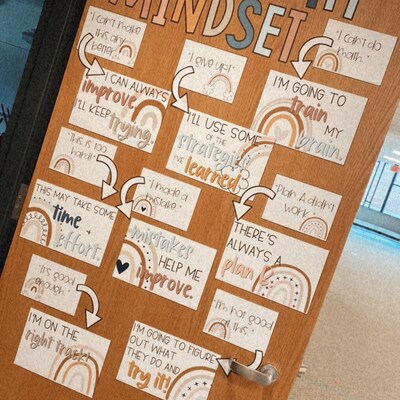 MINDSET
"I can't make
this any
better."
I CAN ALWAYS
improve
I'LL KEEP
trying.
"I give up!"
I'LL USE SOME
OF THE
strategies
I'VE
learned.
"I can't do
math."
I'M GOING TO
train
MY
brain.
"This is too
hard!"
THIS MAY TAKE SOME
time +
effort.
"I made a
mistake."
mistakes
HELP ME
improve.
"Plan A didn't
work."
THERE'S
ALWAYS A
plan B
"It's good
enough."
I'M ON THE
right track!
"I'm not good
at this."
I'M GOING TO FIGURE
OUT WHAT
THEY DO AND
try it!